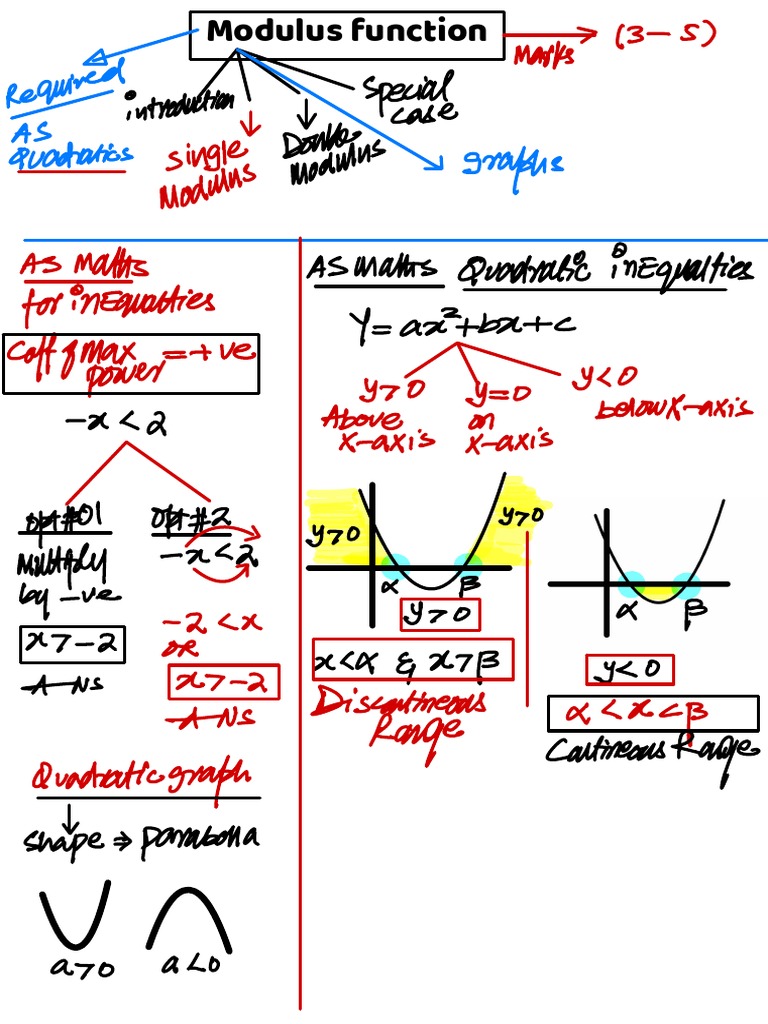 Modulus function
Marks (3-5)
Required
AS
Quadratics
introduction
Single
Modulus
Double
Modulus
Special
case
graphs
AS Maths
for inEqualties
Coff of Max
power = +ve
-x < 2
opt#01
Multiply
by -ve
x > -2
Ans
opt#2
-x < 2
-2 < x
OR
x > -2
Ans
Quadratic graph
shape ⇒ parabolla
a>0
a<0
AS Maths Quadratic inEqualties
Y = ax²+bx+c
y>0
Above
x-axis
y=0
on
x-axis
y<0
below x-axis
y>0
y>0
α
β
y>0
x<α & x>β
Discontineous
Range
α
β
y<0
α < x < β
Contineous Range